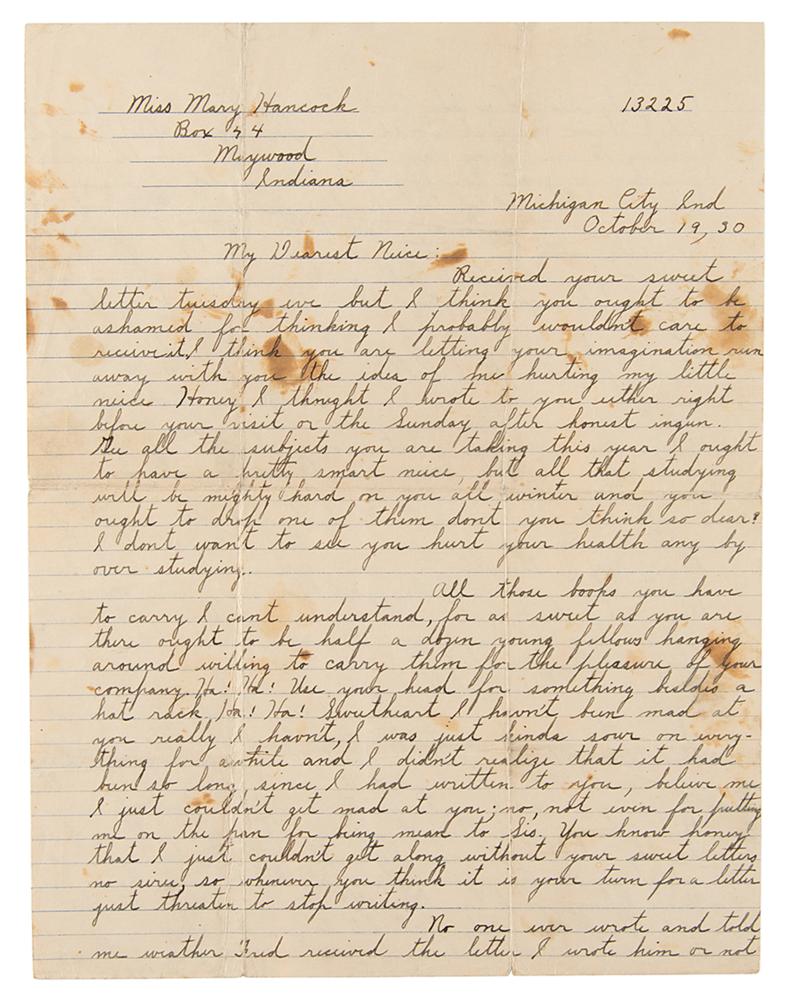 Miss Mary Hancock
13225
Box 44
Maywood
Indiana
Michigan City Ind
October 19, 30
My Dearest Neice:
Received your sweet
letter tuesday eve but I think you ought to be
ashamed for thinking I probably wouldn't care to
receive it. I think you are letting your imagination run
away with you the idea of me hurting my little
neice Honey I thought I wrote to you either right
before your visit or the Sunday after honest ingun.
Gee all the subjects you are taking this year I ought
to have a pretty smart neice, but all that studying
will be mighty hard on you all winter and you
ought to drop one of them dont you think so dear?
I dont want to see you hurt your health any by
over studying..
All those books you have
to carry I cant understand, for as sweet as you are
there ought to be half a dozen young fellows hanging
around willing to carry them for the pleasure of your
company. Ha! Ha! Use your head for something besides a
hat rack, Ha! Ha! Sweetheart I havn't been mad at
you really I havn't, I was just kinda sour on every-
thing for awhile and I didn't realize that it had
been so long since I had written to you, beleive me
I just couldn't get mad at you; no, not even for putting
me on the pan for being mean to Sis. You know honey
that I just couldn't get along without your sweet letters
no siree, so whenever you think it is your turn for a letter
just threaten to stop writing.
No one ever wrote and told
me weather Fred received the letter I wrote him or not